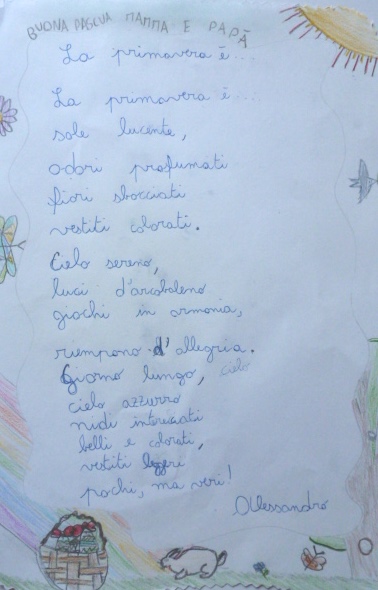 BUONA PASQUA MAMMA E PAPÀ
La primavera è...
La primavera è....
sole lucente,
odori profumati
fiori sbocciati
vestiti colorati.
Cielo sereno,
luci d'arcobaleno
giochi in armonia,
riempono d'allegria.
Giorno lungo, cielo
cielo azzurro
nidi intrecciati
belli e colorati,
vestiti leggeri
pochi, ma veri!
Alessandro